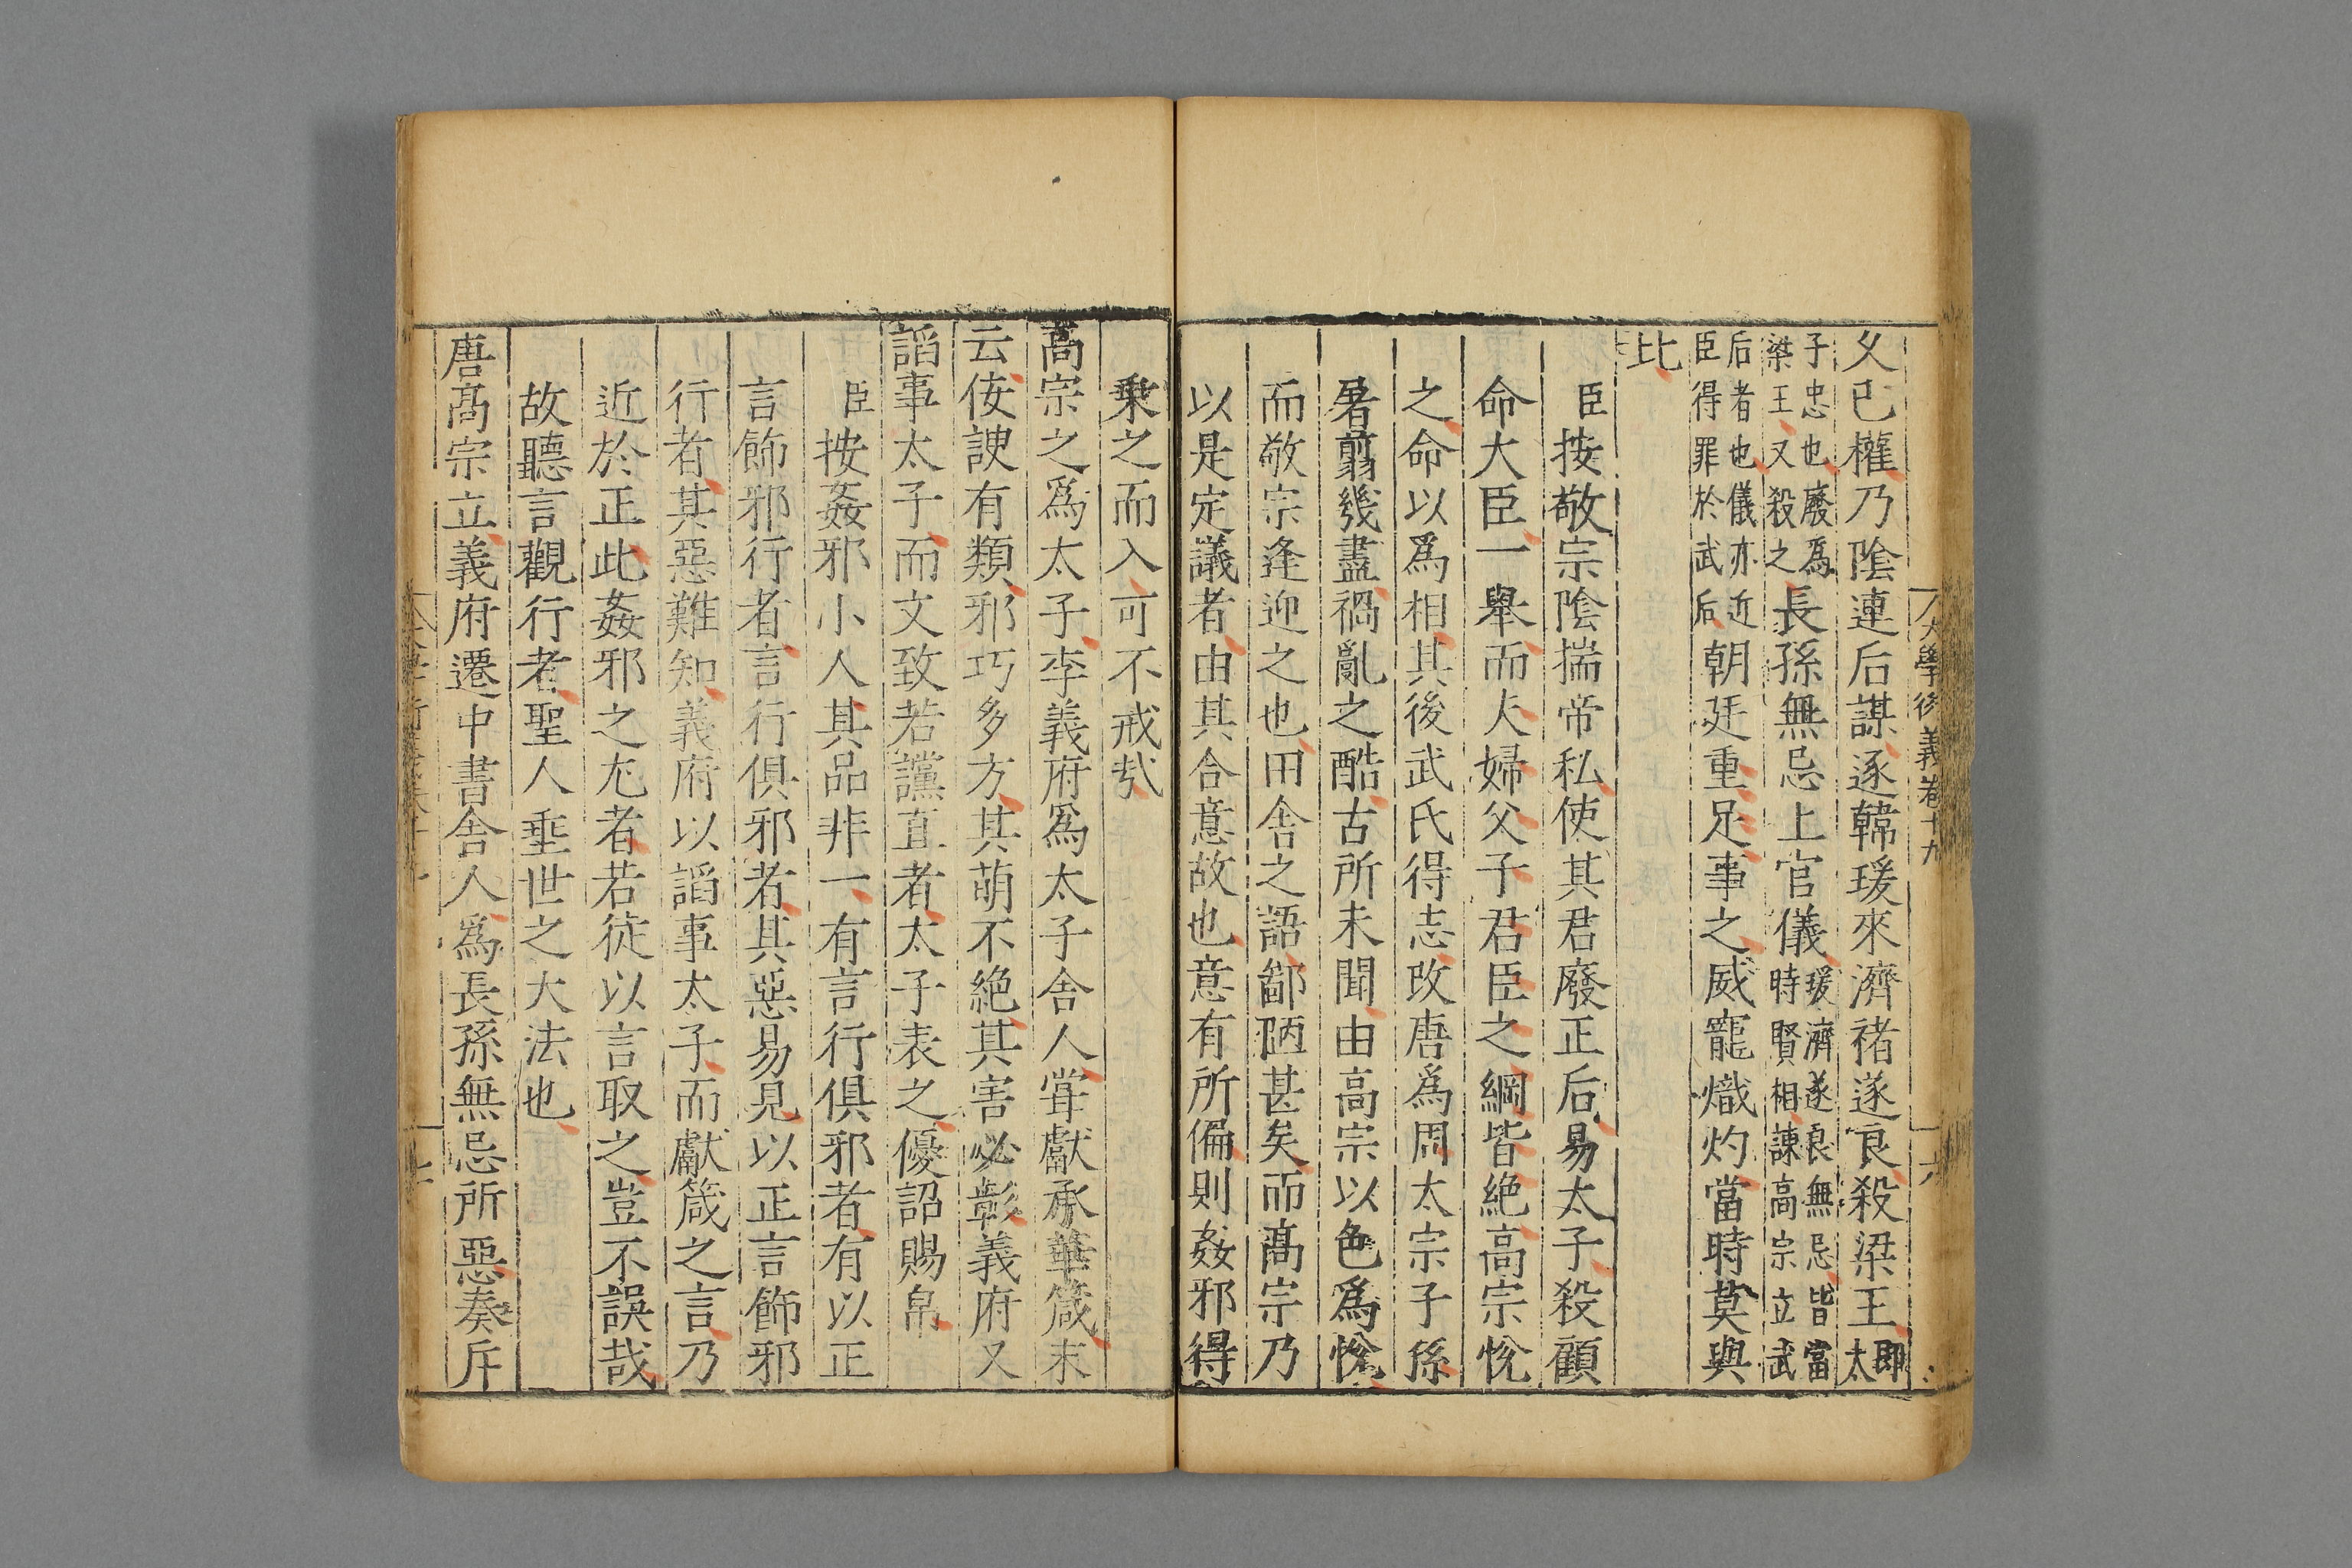 久已權乃陰連后謀逐韓瑗來濟褚遂良殺梁王即太
子忠也廢爲梁王又殺之長孫無忌上官儀瑗濟遂良無忌皆當時賢相諫高宗立武
后者也儀亦近臣得罪於武后朝廷重足事之威寵熾灼當時莫與
比
臣按敬宗陰揣帝私使其君廢正后易太子殺顧
命大臣一舉而夫婦父子君臣之綱皆絶高宗恱
之命以爲相其後武氏得志改唐爲周太宗子孫
暑翦幾盡禍亂之酷古所未聞由高宗以色爲恱
而敬宗逢迎之也田舍之語鄙陋甚矣而髙宗乃
以是定議者由其合意故也意有所偏則姦邪得
乗之而入可不戒㦲
高宗之爲太子李義府爲太子舍人甞獻承華箴末
云佞諛有類邪巧多方其萌不絶其害必彰義府又
諂事太子而文致若讜直者太子表之優詔賜帛
臣按姦邪小人其品非一有言行俱邪者有以正
言飾邪行者言行俱邪者其惡易見以正言飾邪
行者其惡難知義府以諂事太子而獻箴之言乃
近於正此姦邪之尤者若徒以言取之豈不誤哉
故聽言觀行者聖人垂世之大法也
唐髙宗立義府遷中書舍人爲長孫無忌所惡奏斥
大學衍義卷十九
六